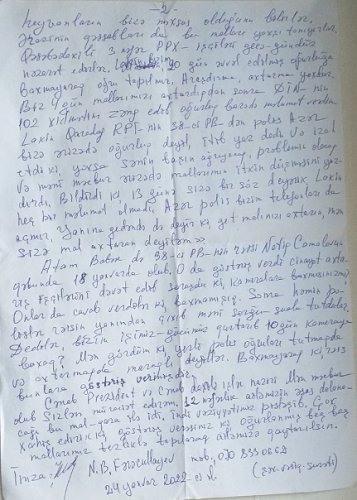 - 2 -
heyvanların bizə məxsus olduğunu bilirlər.
Ərazinin qəssabları da bu malları yaxşı tanıyırlar.
Qəsəbədəki 3 nəfər PPX- işçiləri gecə-gündüz
nəzarət edirlər. 20 gün əvvəl edilmiş oğurluğa
baxmayaraq oğru tapılmır. Araşdırma, axtarma yoxdur.
Biz 4 gün mallarımızı axtardıqdan sonra DİN-nin
102 xidmətini zəng edib oğurluq barədə məlumat verdim.
Lakin Qaradağ RPİ-nin 38-ci PB-dən polis Azər
bizə ərizədə oğurluq deyil, itib yaz dedi və izah
etdi ki, yoxsa sənin başın ağrıyacaq, problemin olacaq
və məni məcbur ərizədə mallarımın itkin düşməsini yaz-
dırdı. Bildirdi ki, 13 günə sizə bir söz deyərik. Lakin
heç bir məlumat olmadı. Azər polis bizim telefonları da
açmır. Yanına gedəndə də deyir ki, get malınızı axtarın, mən
sizə mal axtaran deyiləm".
Atam Bakir də 38-ci PB-nin rəisi Natiq Camalovun
qəbunda 18 yanvarda olub. O da göstəriş verdi cinayət axta-
rış işçilərini dəvət edib soruşdu ki, kameralara baxmısınızmı?
Onlar da cavab verdilər ki, baxmamışıq. Sonra həmin po-
lislər rəisin yanından çıxıb məni sorğu-suala tutdular.
Dedilər, bizim işimiz-gücümüz qurtarıb 10 gün kameraya
baxaq? Mən gördüm ki, yerli polis oğruları tutmaqda
və axtarmaqda maraqlı deyillər. Baxmayaraq ki, rəis
bunlara göstəriş vermişdir.
Cənab Prezident və Cənab daxili işlər naziri Mən məcbur
olub Sizlərə müraciət edirəm. 12 nəfərlik ailəmizin əsas dolana-
cağı bu mal-qara idi, indi vəziyyətimiz pisləşib. Çox
xahiş edirik ki, göstəriş verəsiniz ki, oğurlanmış beş baş
mallarımız tezliklə tapılaraq ailəmizə qaytarılsın.
İmza: N.B. Fərəcullayev mob. 070 8330862
24 yanvar 2022-ci il. (şəx. vəsiq. surəti)